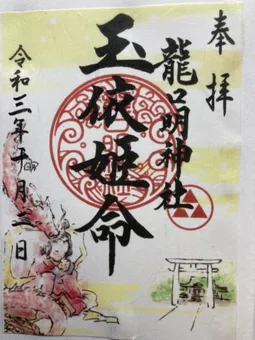 奉拝
龍口明神社
玉依姫命
令和三年十月三日